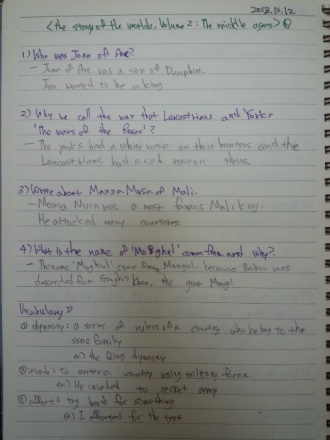 2018.10.12
<the story of the world, Volume 2: The middle ages>
1) Who was Joan of Arc?
- Joan of Arc was a son of Dauphin.
Joan wanted to be a king
2) Why we call the war that Lancastrians and Yorks
'The wars of the Roses'?
- The yorks had a white rose on their banners and the
Lancastrians had a red rose on theirs.
3) Write about Mansa Musa of Mali.
- Mansa Musa was a most famous Mali king.
He attacked many countries.
4) What is the name of 'Moghul' come from and why?
- The name 'Moghul' come from Mongol, because Babur was
descended from Genghis Khan, the great Mongol.
Vocabulary>>
① dynasty: a series of rulers of a country who belong to the
same family
ex) the Qing dynasty
② invade: to enter a country using military force
ex) He invaded to secret army
③ effort: try hard for something
ex) I efforted for the test